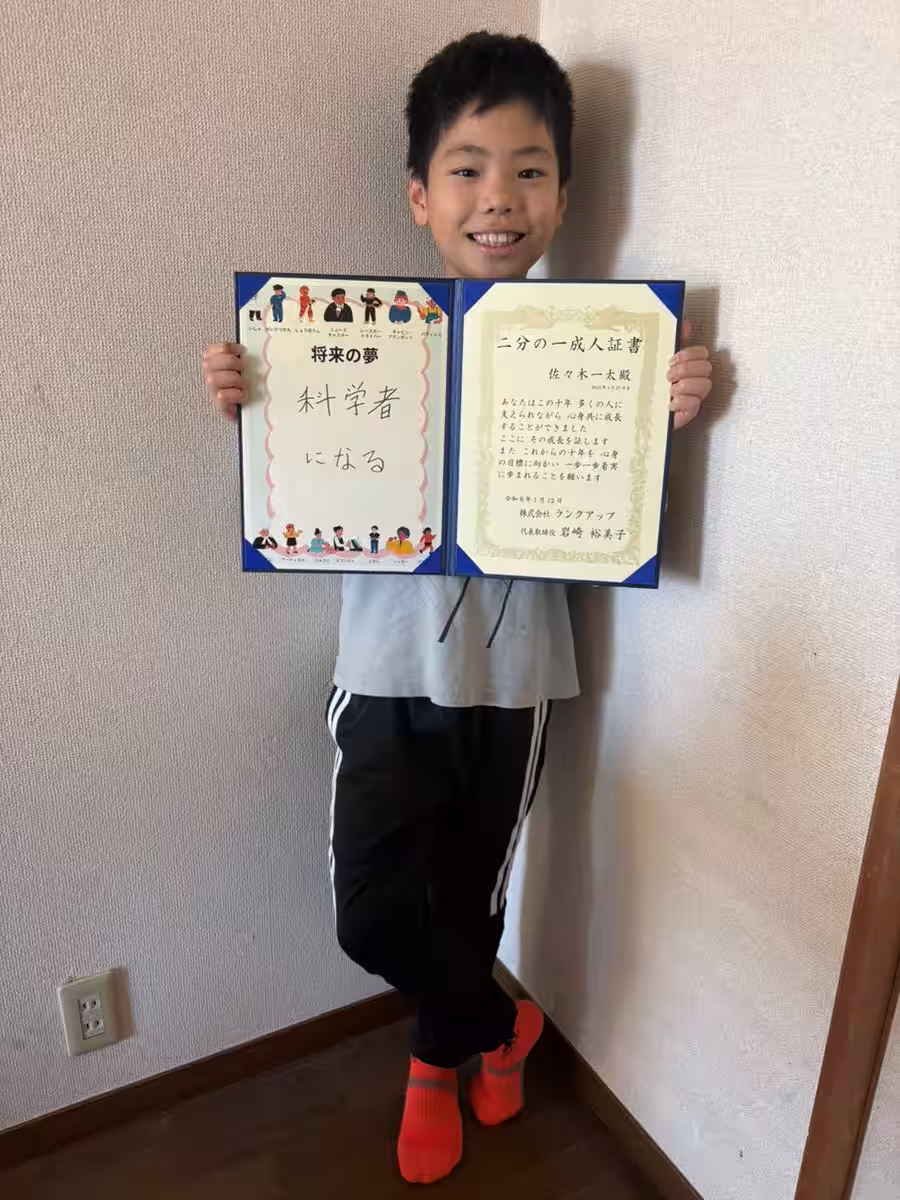 いしゃ けいさつかん しょうぼうし ニュースキャスター レースカードライバー キャビンアテンダント パティシエ
将来の夢
科学者
になる
二分の一成人証書
佐々木一太殿
あなたはこの十年 多くの人に
支えられながら 心身共に成長
することができました
ここに その成長を証します
また これからの十年を 心身
の目標に向かい 一歩一歩着実
に歩まれることを願います
令和8年1月12日
株式会社 ランクアップ
代表取締役 岩﨑 裕美子